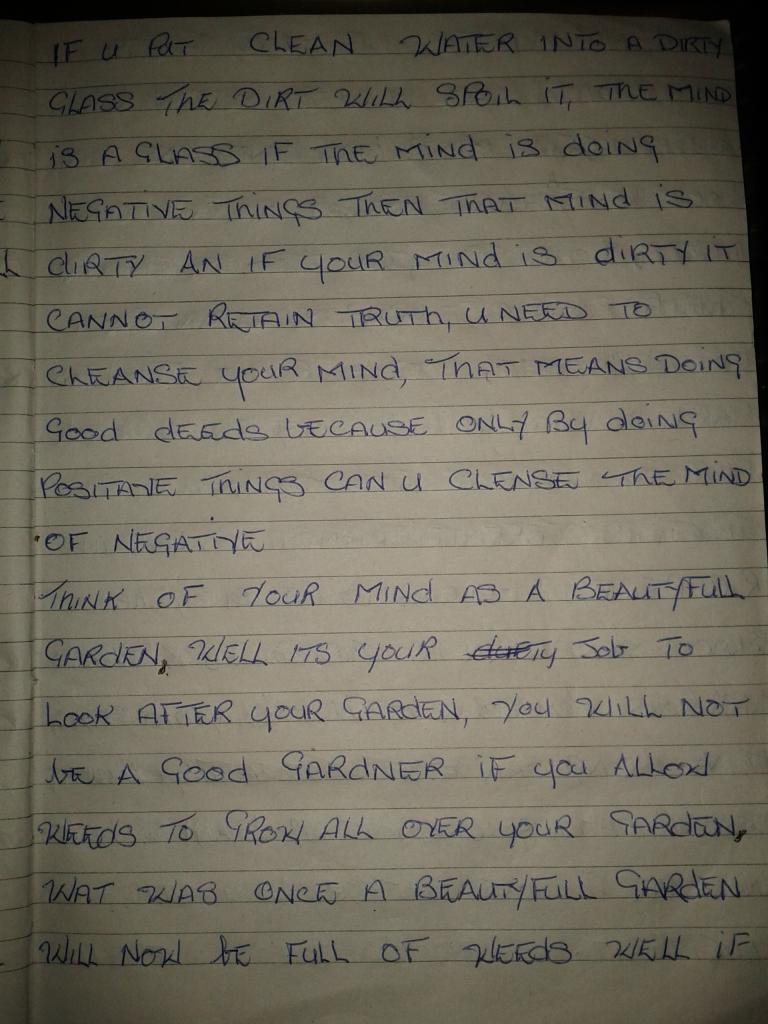 IF U PUT CLEAN WATER INTO A DIRTY
GLASS THE DIRT WILL SPOIL IT, THE MIND
IS A GLASS IF THE MIND IS doING
NEGATIVE THINGS THEN THAT MIND IS
dIRTY AN IF YOUR MIND IS dIRTY IT
CANNOT RETAIN TRUTH, U NEED TO
CLEANSE YOUR MIND, THAT MEANS DOING
Good dEEdS bECAUSE ONLY By doING
POSITATIVE THINGS CAN U CLENSE THE MIND
OF NEGATIVE
THINK OF YOUR MIND AS A BEAUTYFULL
GARdEN, WELL ITS YOUR duETy Job TO
LOOK AFTER YOUR GARDEN, YOU WILL NOT
bE A Good GARdNER IF you ALLOW
WEEdS TO GROW ALL OVER YOUR GARDEN,
WAT WAS ONCE A BEAUTYFULL GARDEN
WILL NOW bE FULL OF WEEDS WELL IF